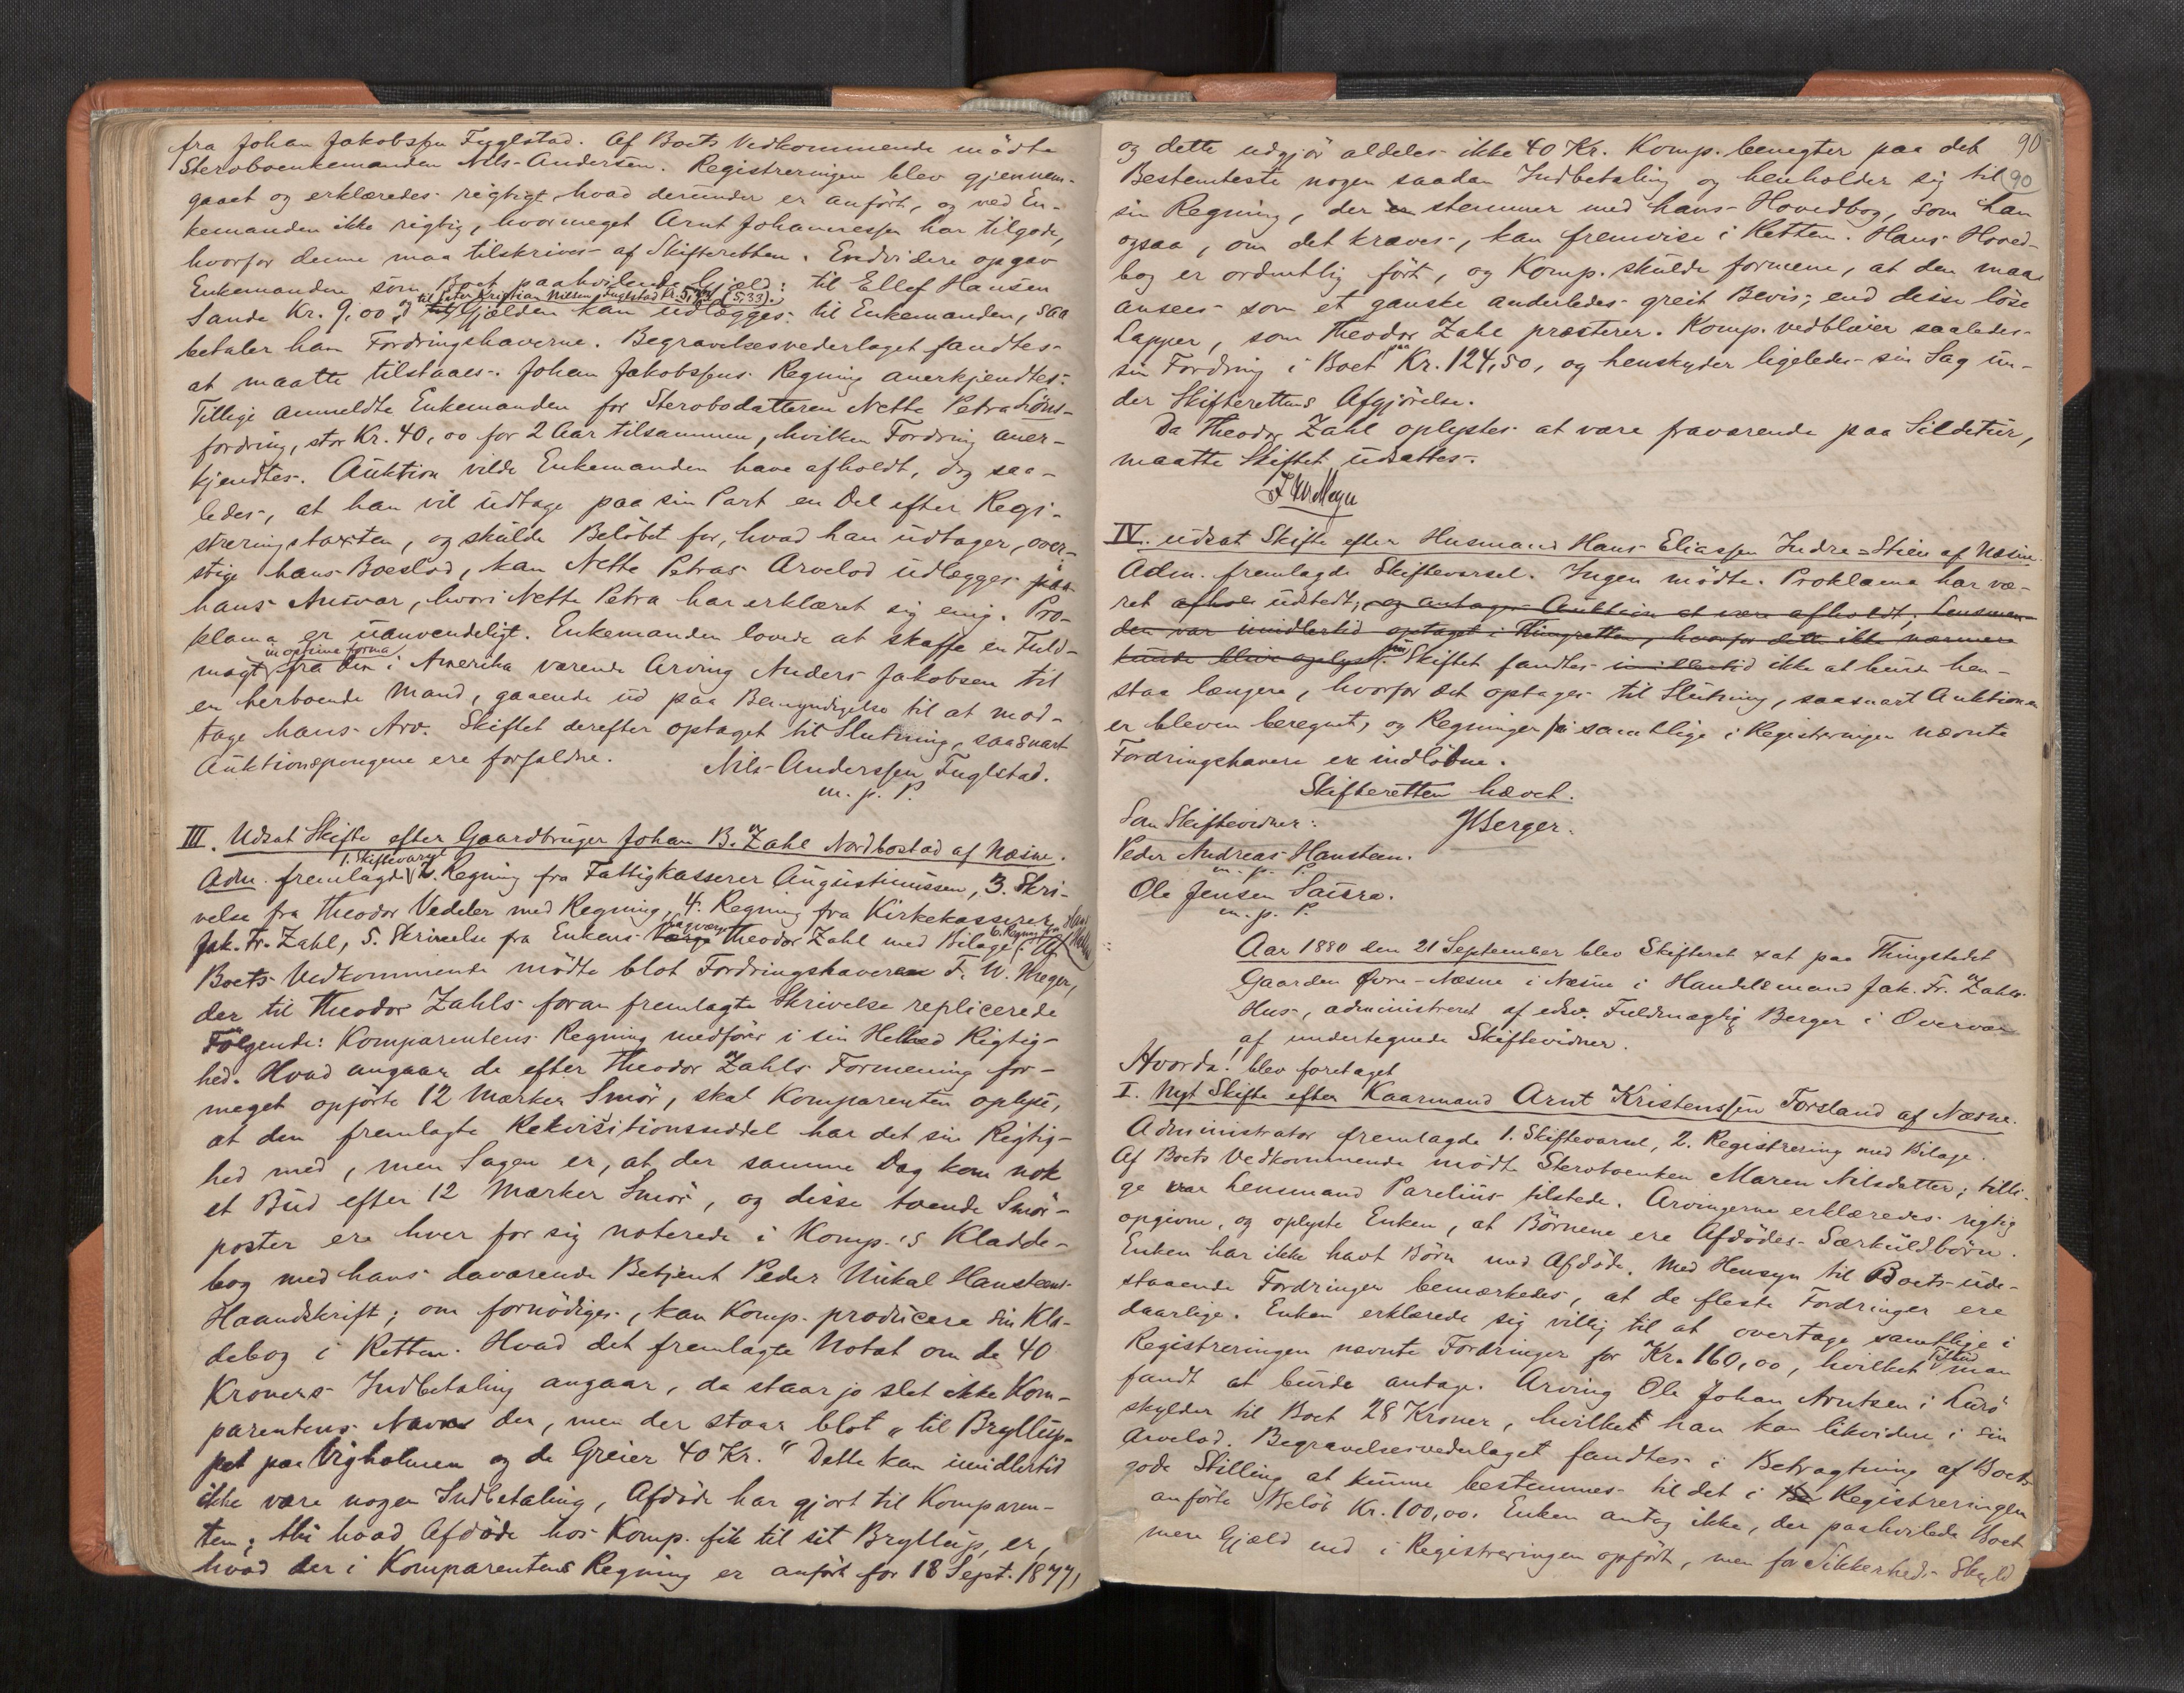 fra Johan Jakobssen Fuglstad. Af Boets Vedkommende mödte
Sterboenkemanden Nils Andersen. Registreringen blev gjennem-
gaaet og erklæredes rigtigt, hvad derunder er anfört, og ved En-
kemanden ikke rigtig, hvormeget Arnt Johannessen har tilgode,
hvorfor denne maa tilskrives af Skifteretten. Endvidere opgav
Enkemanden som Boet paahvilende Gjæld: til Ellef Hansen
til Peter Kristian Nilsen Fuglstad Kr. 5,33 (5,33).
Sande Kr. 9,00 og Gjælden kan udlægges til Enkemanden, saa
betaler han Fordringshaverne. Begravelsesvederlaget fandtes
at maatte tilstaaes. Johan Jakobssens Regning anerkjendtes.
Tillige anmeldte Enkemanden for Sterbodatteren Nette Petra Löns-
fordring, stor Kr. 40,00 for 2 Aar tilsammen, hvilken Fordring aner-
kjendtes. Auktion vilde Enkemanden have afholdt, dog saa-
ledes, at han vil udtage paa sin Part en Del efter Regi-
streringstaxten, og skulde Belöbet for, hvad han udtager, over-
stige hans Boeslod, kan Nette Petras Arvelod udlægges paa
hans Ansvar, hvori Nette Petra har erklæret sig enig. Pro-
klama er uanvendeligt. Enkemanden lovede at skaffe en Fuld-
in optima forma
magt fra den i Amerika værende Arving Anders Jakobsen til
en herboende Mand, gaaende ud paa Bemyndigelse til at mod-
tage hans Arv. Skiftet derefter optaget til Slutning, saasnart
Auktionspengene ere forfaldne.
Nils Anderssen Fuglstad.
m. p. P.
III. Udsat Skifte efter Gaardbruger Johan B. Zahl Nordbostad af Næsne.
1. Skiftevarsel
Adm. fremlagde 2. Regning fra Fattigkasserer Augustinussen, 3. Skri-
velse fra Theodor Vedeler med Regning, 4. Regning fra Kirkekasserer
Lagværge 6. Regning fra
Jak. Fr. Zahl, 5. Skrivelse fra Enkens Værge Theodor Zahl med Bilage. Af
Boets Vedkommende mödte blot Fordringshaveren F. W. Meyer,
der til Theodor Zahls foran fremlagte Skrivelse replicerede
Fölgende: Komparentens Regning medförer i sin Helhed Rigtig-
hed. Hvad angaar de efter Theodor Zahls Formening for-
meget opförte 12 Marker Smör, skal Komparenten oplyse,
at den fremlagte Rekvisitionsseddel har det sin Rigtig-
hed med, men Sagen er, at der samme Dag kom nok
et Bud efter 12 Marker Smör, og disse tvende Smör-
poster ere hver for sig noterede i Komp.'s Kladde-
bog med hans daværende Betjent Peder Mikal Hansteens
Haandskrift; om fornödiges, kan Komp. producere sin Kla-
debog i Retten. Hvad det fremlagte Notat om de 40
Kroners Indbetaling angaar, da staar jo slet ikke Kom-
parentens Navn der, men der staar blot „til Bryllup-
pet paa Vigholmen og de Greier 40 Kr." Dette kan imidlertid
ikke være nogen Indbetaling, Afdöde har gjort til Komparen-
ten; thi hvad Afdöde hos Komp. fik til sit Bryllup, er,
hvad der i Komparentens Regning er anfört for 18 Sept. 1877,
90
90
og dette udgjör aldeles ikke 40 Kr. Komp. benegter paa det
Bestemteste nogen saadan Indbetaling og henholder sig til
sin Regning, der er stemmer med hans Hovedbog, som han
ogsaa, om det kræves, kan fremvise i Retten. Hans Hoved-
bog er ordentlig fört, og Komp. skulde formene, at den maa
ansees som et ganske anderledes greit Bevis, end disse löse
Lapper, som Theodor Zahl præsterer. Komp. vedbliver saaledes
paa
sin Fordring i Boet Kr. 124,50, og henskyder ligeledes sin Sag un-
der Skifterettens Afgjörelse.
Da Theodor Zahl oplystes at være fraværende paa Sildetur,
maatte Skiftet udsættes.
F W Meyer
IV. Udsat Skifte efter Husmand Hans Eliassen Indre-Stien af Næsne.
Adm. fremlagde Skiftevarsel. Ingen mödte. Proklama har væ-
ret afhol udstedt, og antages Auktion at være afholdt, Lensman-
den var imidlertid optaget i Thingretten, hvorfor dette ikke nærmere
kunde blive oplyst. Skiftet fandtes imidlertid ikke at burde hen-
staa længere, hvorfor det optages til Slutning, saasnart Auktionen
er bleven beregnet, og Regninger fra samtlige i Registreringen nævnte
Fordringshavere ere indlöbne.
Skifteretten hævet.
Som Skiftevidner:
JBerger.
Peder Andreas Hansteen.
m. p. P.
Ole Jensen Saura.
m. p. P.
Aar 1880 den 21 September blev Skifteret sat paa Thingstedet
Gaarden Övre-Næsne i Næsne i Handelsmand Jak. Fr. Zahls
Hus, administreret af edsv. Fuldmægtig Berger i Overvær
af undertegnede Skiftevidner.
Hvorda! blev foretaget
I. Nyt Skifte efter Kaarmand Arnt Kristenssen Forsland af Næsne.
Administrator fremlagde 1. Skiftevarsel, 2. Registrering med Bilage.
Af Boets Vedkommende mödte Sterboenken Maren Nilsdatter; tilli-
ge var Lensmand Parelius tilstede. Arvingerne erklæredes rigtig
opgivne, og oplyste Enken, at Börnene ere Afdödes Særkuldbörn.
Enken har ikke havt Börn med Afdöde. Med Hensyn til Boets ude-
staaende Fordringer bemærkedes, at de fleste Fordringer ere
daarlige. Enken erklærede sig villig til at overtage samtlige i
Tilbud
Registreringen nævnte Fordringer for Kr. 160,00, hvilket man
fandt at burde antage. Arving Ole Johan Arntsen i Lurö
skylder til Boet 28 Kroner, hvilket han kan likvidere i sin
Arvelod. Begravelsesvederlaget fandtes i Betragtning af Boets
gode Stilling at kunne bestemmes til det i Registreringen
anförte Belöb Kr. 100,00. Enken antog ikke, der paahvilede Boet
mere Gjæld end i Registreringen opfört, men for Sikkerheds Skyld